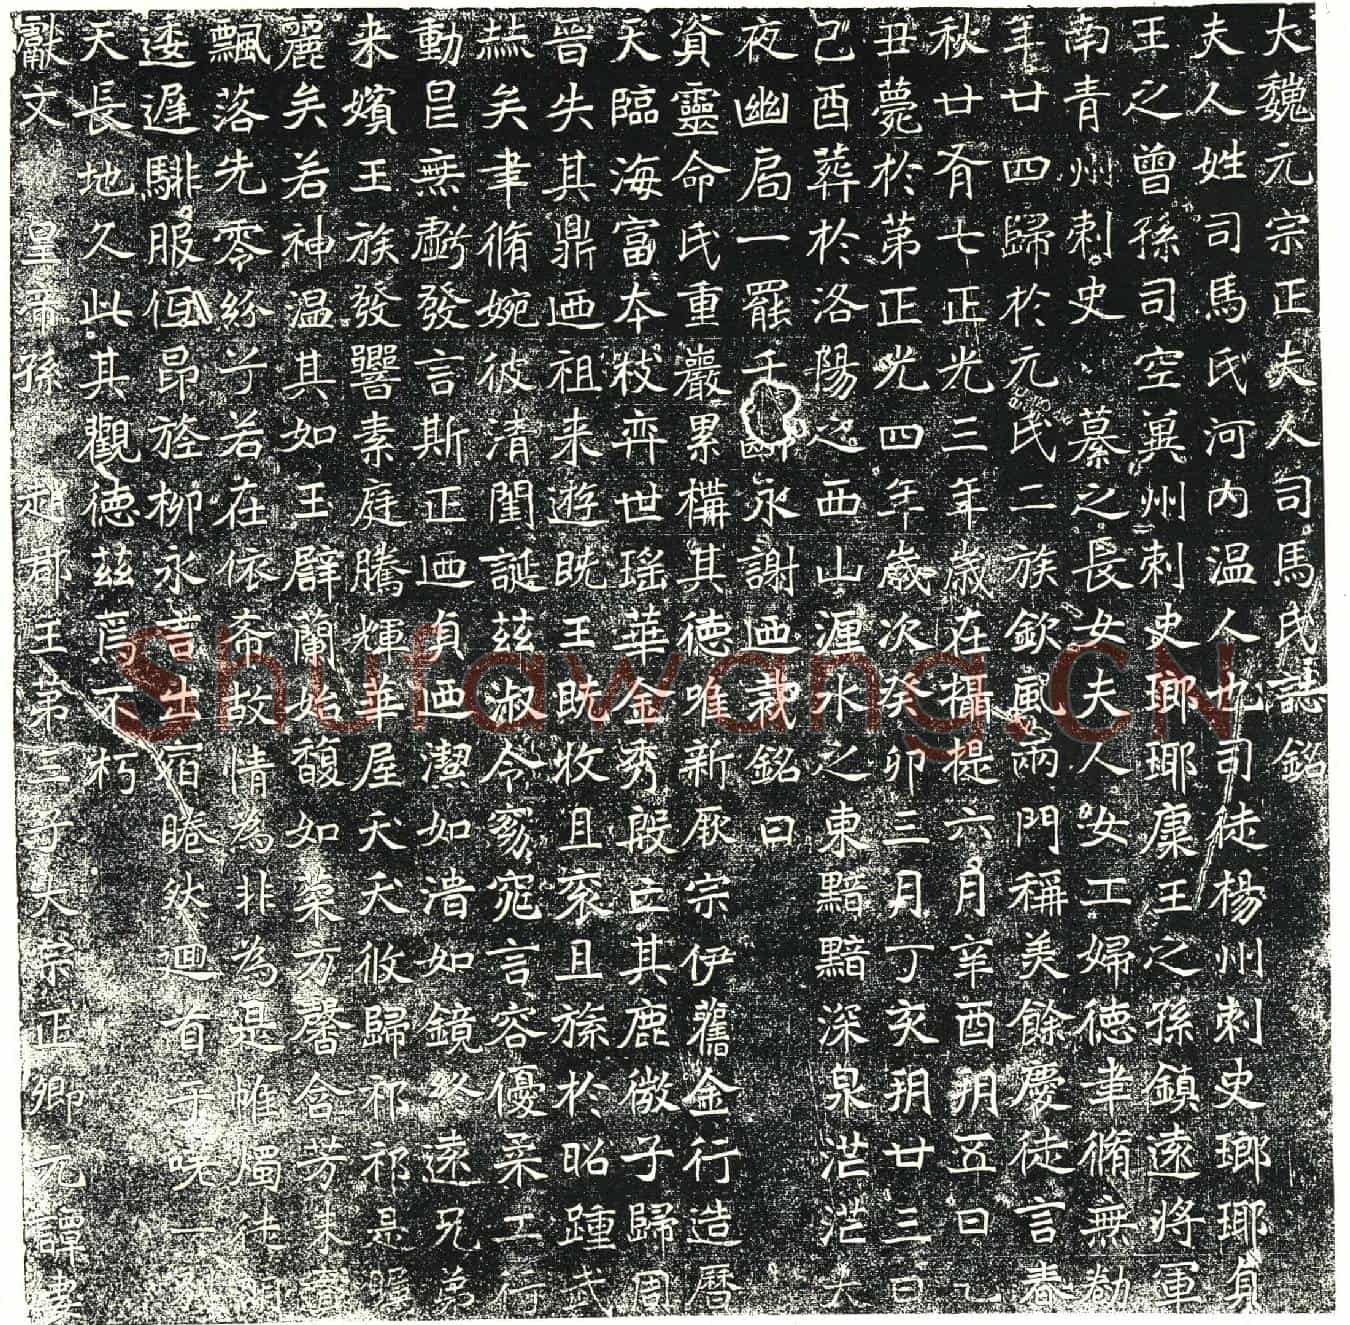 大魏元宗正夫人司馬氏誌銘
夫人姓司馬氏河内温人也司徒楊州刺史瑯耶貞
王之曾孫司空冀州刺史瑯耶康王之孫鎮遠將軍
南青州刺史、纂之長女夫人女工婦徳聿脩無勌
年廿四歸於元氏二族欽風兩門稱美餘慶徒言春
秋廿有七正光三年歲在攝提六月辛酉朔五日乙
丑薨於第正光四年歲次癸卯三月丁亥朔廿三日
己酉葬於洛陽之西山瀍水之東黯黯深泉茫茫大
夜幽扃一罷千齡永謝迺裁銘曰
資靈命氏重巖累構其徳唯新厥宗伊舊金行造曆
天臨海富本枝弈世瑤華金秀殷亡其鹿微子歸周
晉失其鼎迺祖来遊旣王旣牧且衮且旒於昭踵武
烋矣聿脩婉彼清閨誕茲淑令窈窕言容優柔工行
動皀無虧發言斯正迺貞迺潔如漬如鏡終遠兄弟
来嬪王族發響素庭騰輝華屋夭夭攸歸祁祁是睦
麗矣若神温其如玉辟蘭始馥如桒方馨含芳未實
飄落先零紛乎若在依帝故情為非為是帷燭徒明
逶遲騑服伍昂旌柳永言生宿睠然迴首于嗟一別
天長地久此其觀徳茲焉不朽
獻文皇帝孫趙郡王第三子大宗正卿元譚妻
shufawang.cn